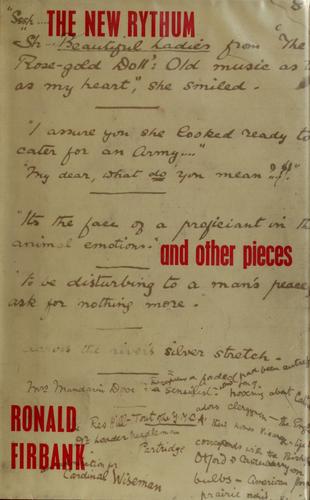 "Sssh...
THE NEW RYTHUM
"Sh.. Beautiful Ladies from "The
Rose-gold Doll": Old music as
as my heart," she smiled.
"I assure you she looked ready to
cater for an Army..."
"My dear, what do you mean??!"
"Its the face of a proficiant in the
animal emotions."
and other pieces
"To be disturbing to a man's peace,
ask for nothing more.
across the river's silver stretch.
Mrs Mandarin Dove
RONALD
FIRBANK
Partridge
Cardinal Wiseman
corresponds with the
Oxford &
bulbs - American